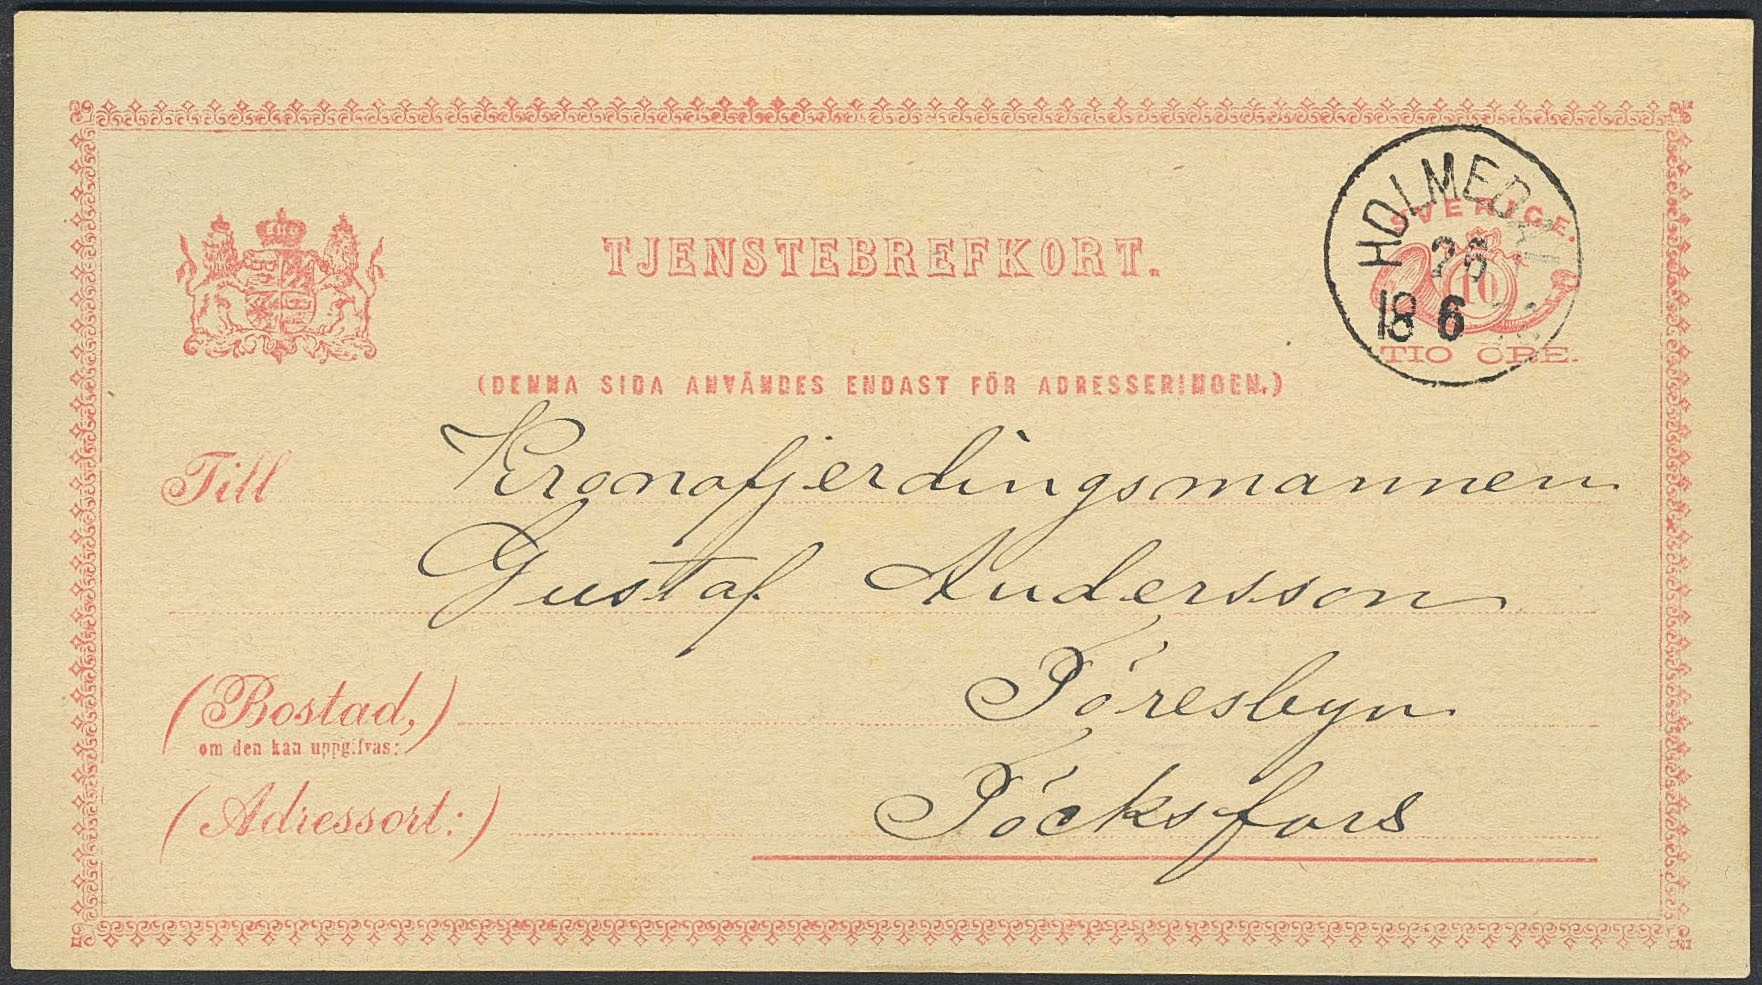 TJENSTEBREFKORT.
HOLMEDAL
26
18 6
SVERIGE.
10
TIO ÖRE.
(DENNA SIDA ANVÄNDES ENDAST FÖR ADRESSERINGEN.)
Till Kronofjerdingsmannen
Gustaf Andersson
(Bostad,) Töresbyn
om den kan uppgifvas:
(Adressort:) Töcksfors